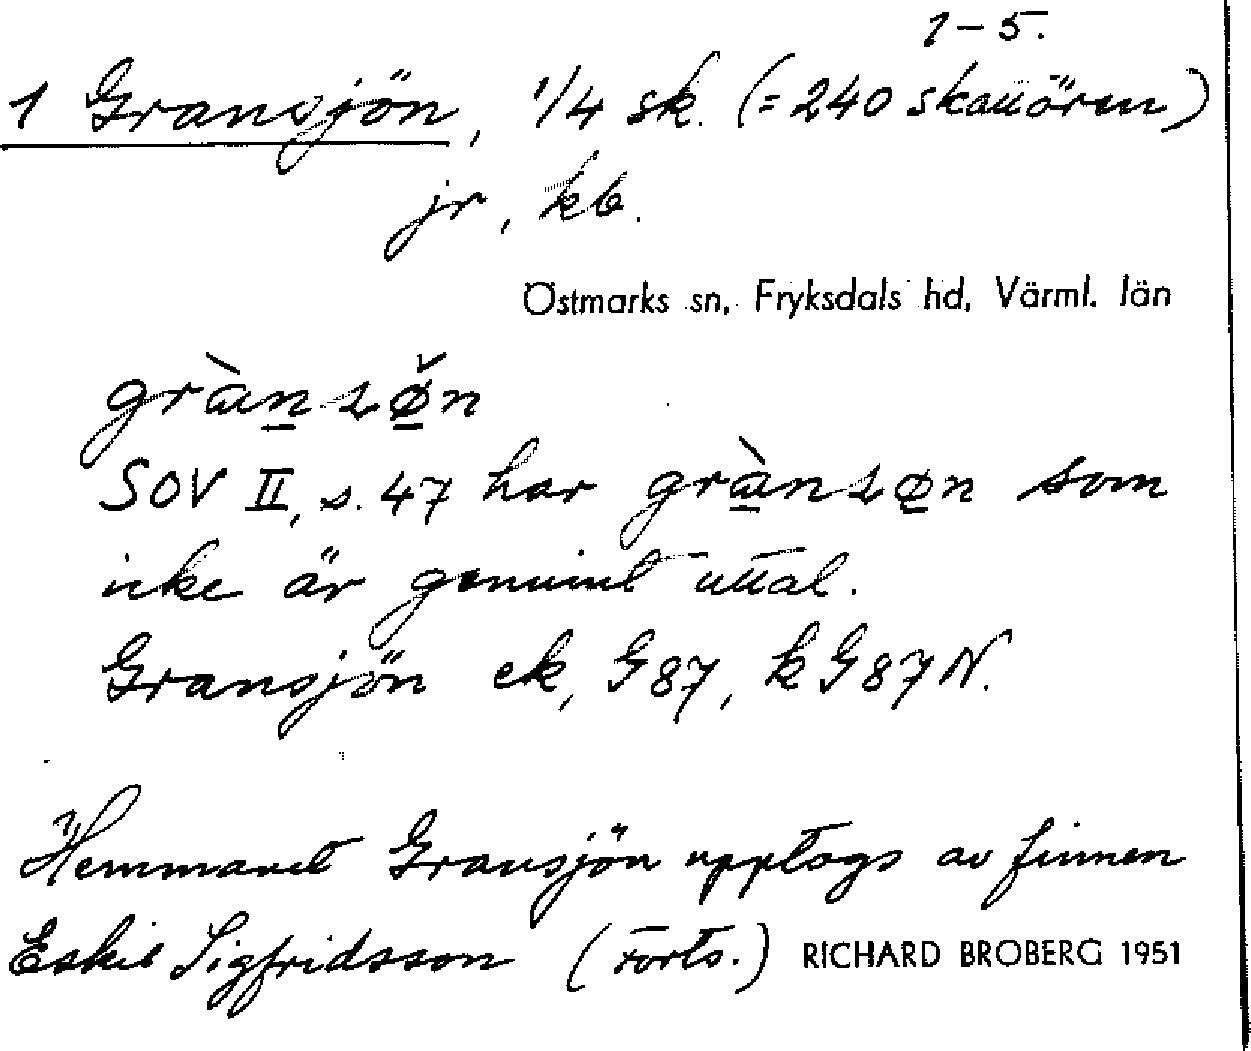 1-5.
1 Gransjön, 1/4 sk. (= 240 skattören)
jr, kb.
Östmarks sn, Fryksdals hd, Värml. län
SOV II, s. 47 har som
icke är genuint uttal.
Gransjön ek, G87, k G87N.
Hemmanet Gransjön upptogs av finnen
Eskil Sigfridsson (Forts.) RICHARD BROBERG 1951